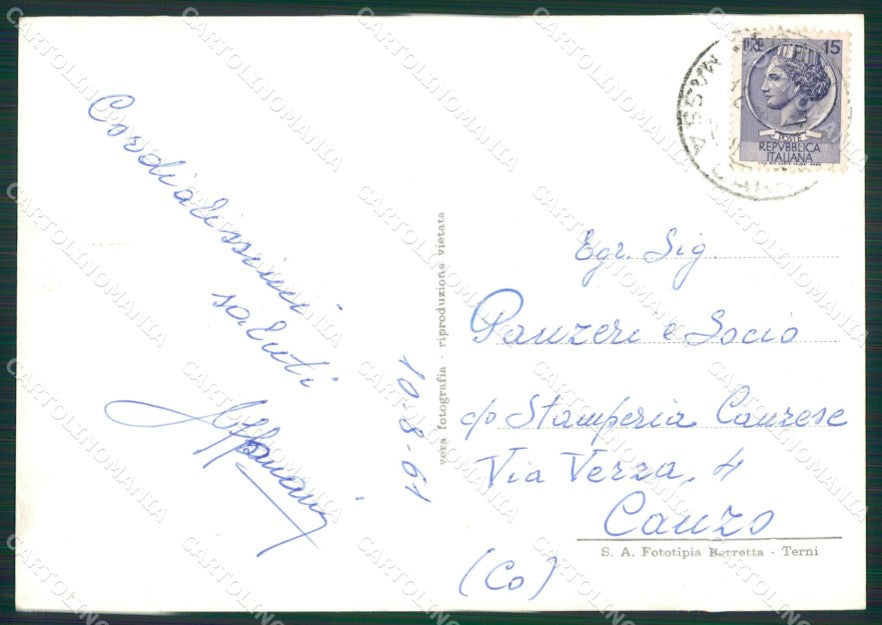 Cordialissimi
saluti
10-8-61
vera fotografia - riproduzione vietata
LIRE 15
POSTE
REPVBBLICA
ITALIANA
Egr. Sig.
Panzeri e Socio
c/o Stamperia Canzese
Via Verza, 4
Canzo
S. A. Fototipia Berretta - Terni
(Co)
CARTOLINOMANIA